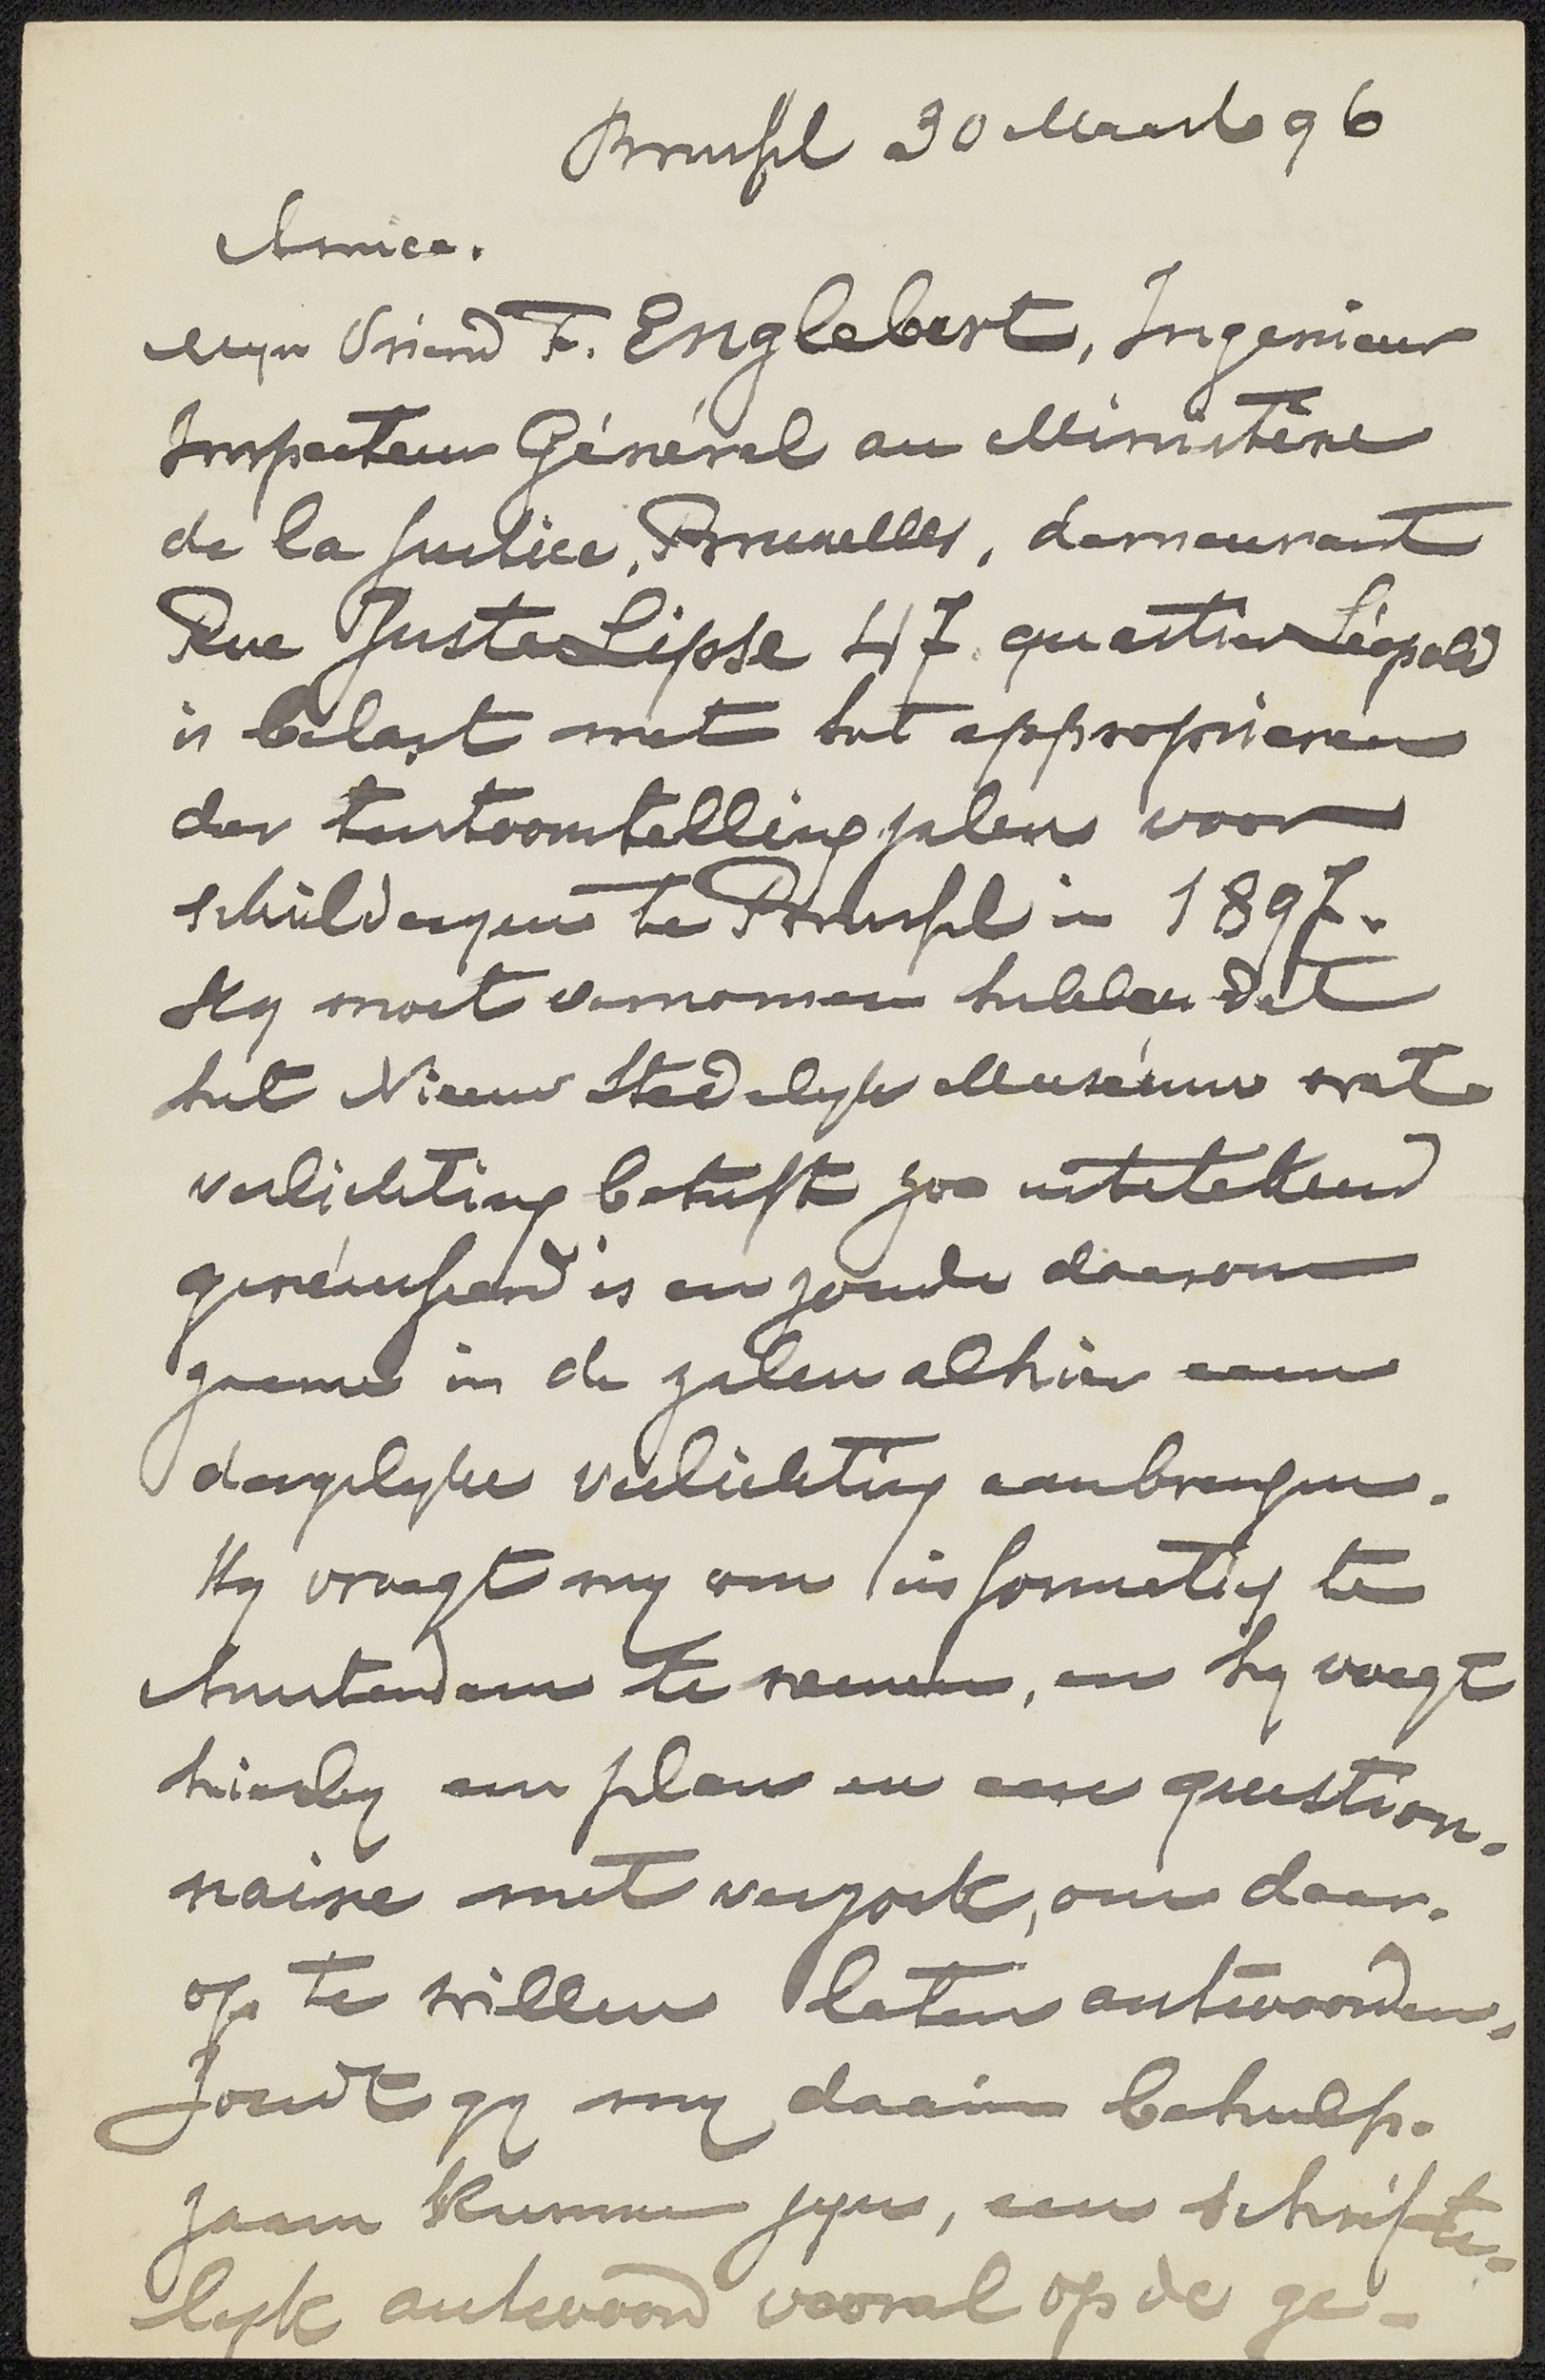 Brussel 30 Maart 96
Amice.
Mijn vriend F. Englebert, Ingenieur
Inspecteur Général au Ministère
de la Justice, Bruxelles, demeurant
Rue Juste Lipse 47. quartier Léopold
is belast met het approprieren
der tentoonstellingzalen voor
schilderyen te Brussel in 1897.
Hy moet vernomen hebben dat
het Nieuw Stedelyk Museum wat
verlichting betreft zoo uitstekend
geréusseerd is en zoude daarom
gaarne in de zalen alhier eene
dergelyke verlichting aanbrengen.
Hy vraagt my om informatiy te
Amsterdam te nemen, en hy voegt
hierby een plan en eene question-
naire met verzoek, om daar-
op te willen laten antwoorden,
Zoudt gy my daarin behulp-
zaam kunnen zyn, een schrifte-
lyk antwoord vooral op de ge-